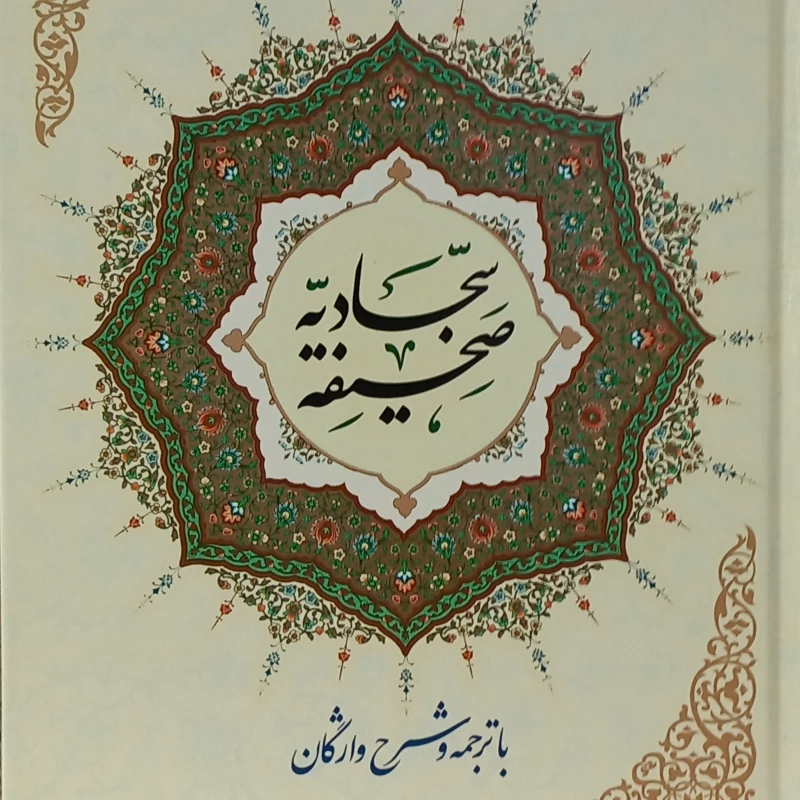 صَحیفِۀ
سجّادیّه
با ترجمه و شرح واژگان